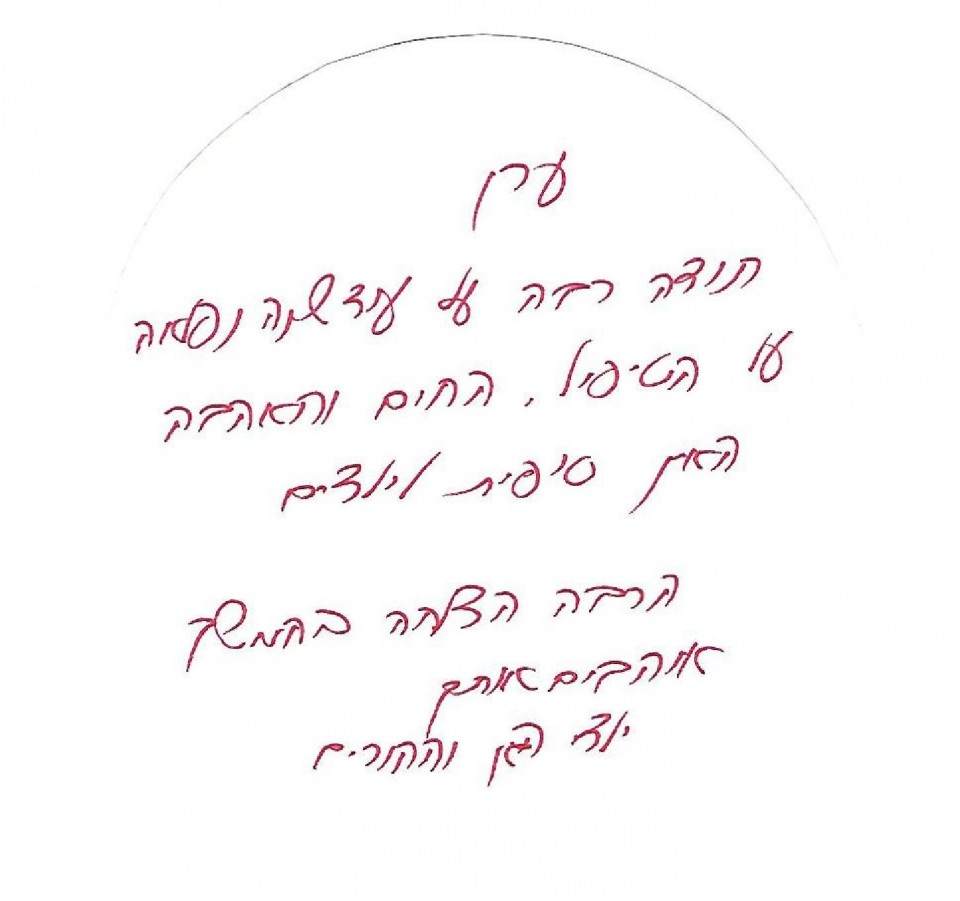 ערן
תודה רבה על עוד שנה נפלאה
על הטיפול, החום והאהבה
האין סופית לילדים
הרבה הצלחה בהמשך
אוהבים אותך
ילדי הגן וההורים